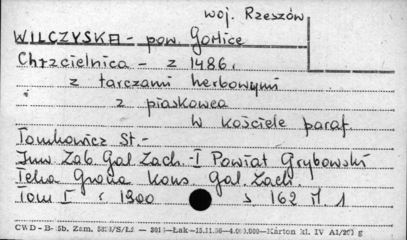 woj. Rzeszów
WILCZYSKA - pow. Gorlice
Chrzcielnica - z 1486r.
z tarczami herbowymi
z piaskowca
w kościele paraf.
Tomkowicz St. -
Inw. Zab. Gal. Zach. - I Powiat Grybowski
Teka Grona Kons. Gal. Zach.
Tom I r 1900 s. 162 il. 1
CWD - B- 5b. Zam. Łak - 15.11.56 - 4.000.000 - Karton kl. IV A1/250 g